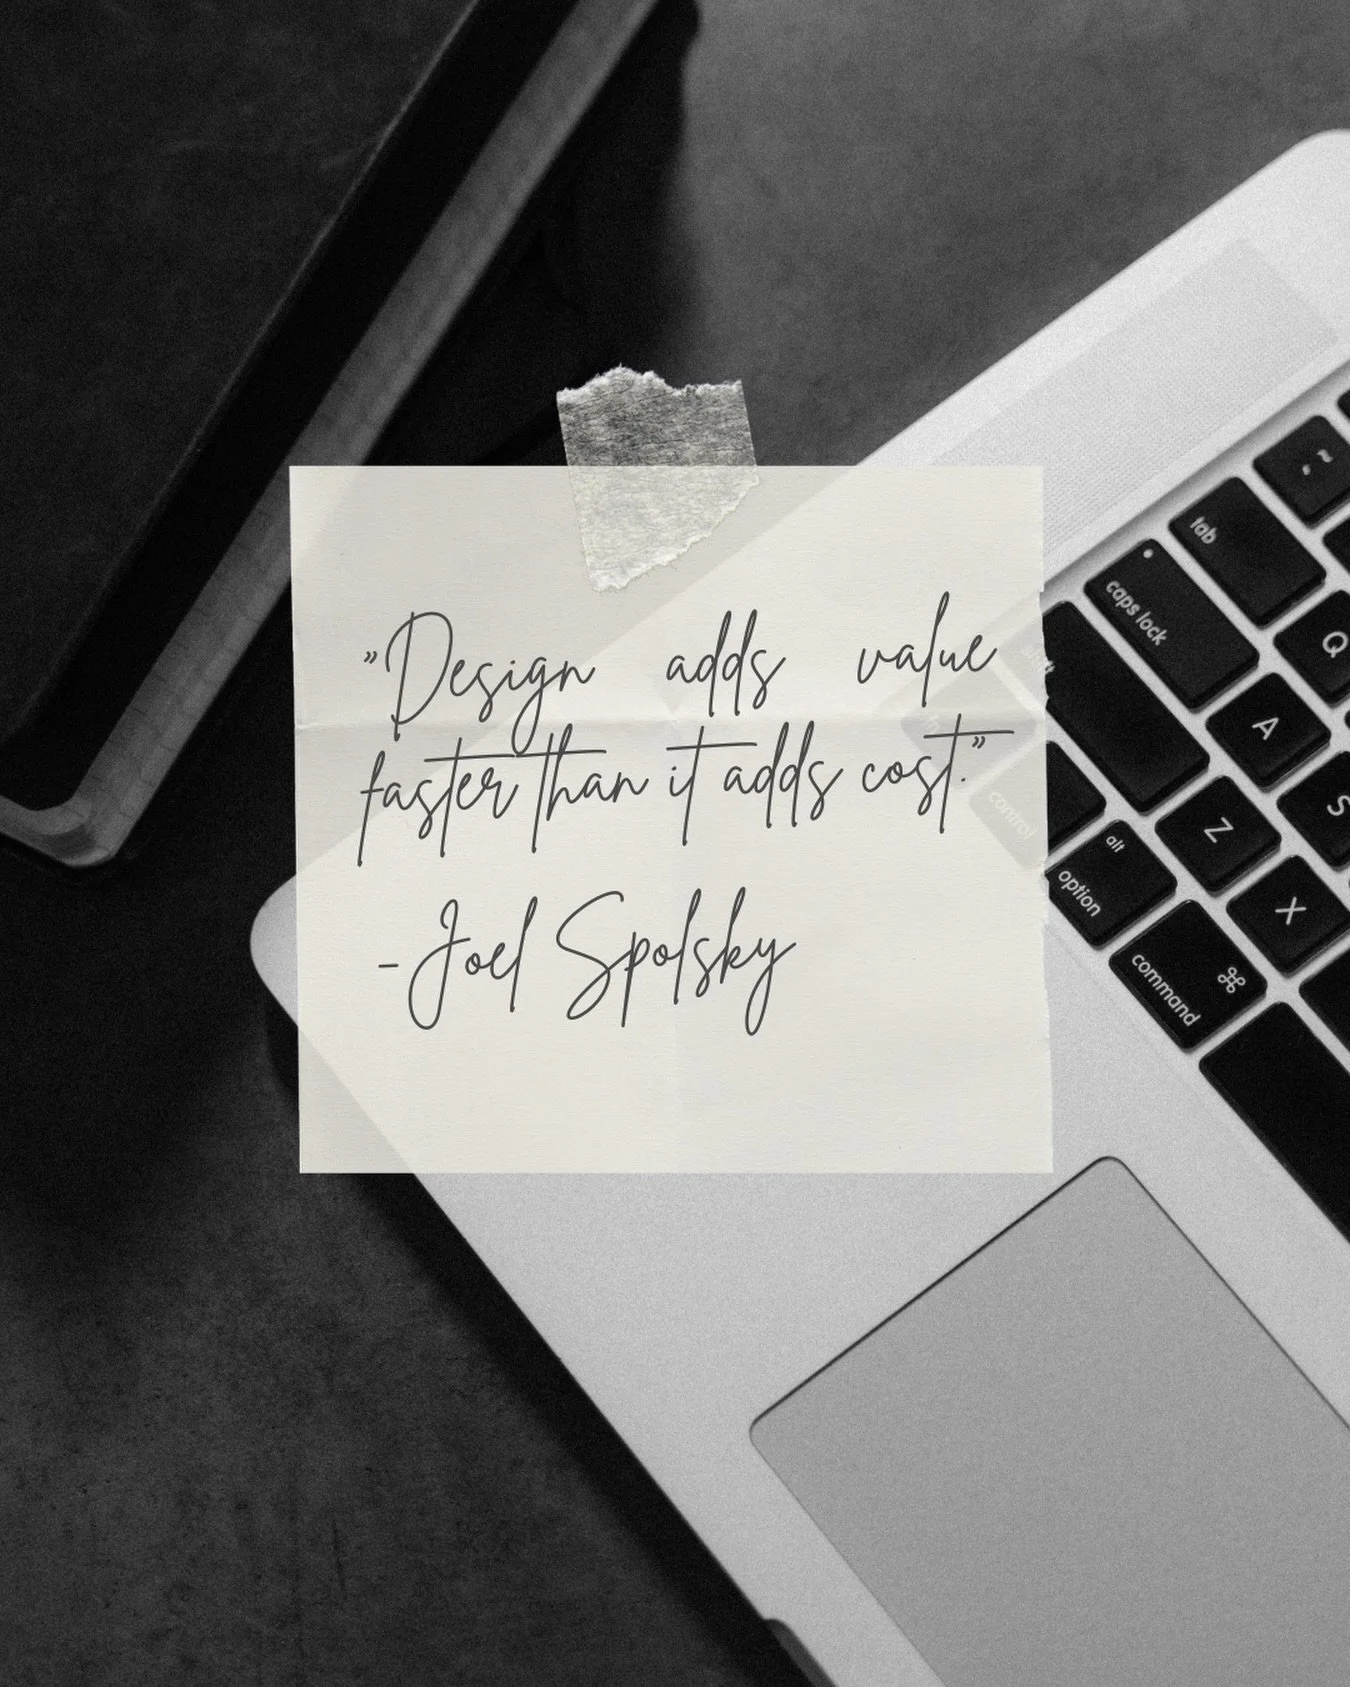 "Design adds value
faster than it adds cost."
-Joel Spolsky
~
tab
caps lock
Q
A
S
Z
X
control
alt
option
command
⌘